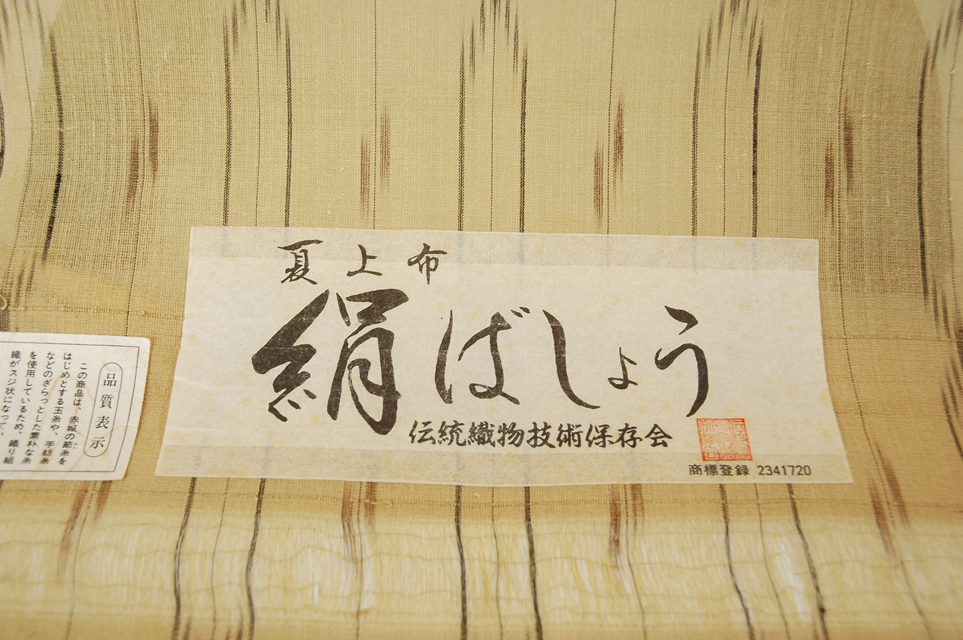 夏上布
絹ばしょう
伝統織物技術保存会
商標登録 2341720
品質表示
この商品は、赤城の節糸を
はじめとする玉糸や、手紡糸
などのざらっとした素朴な糸
を使用しているため、織り組
織がスジ状になって、